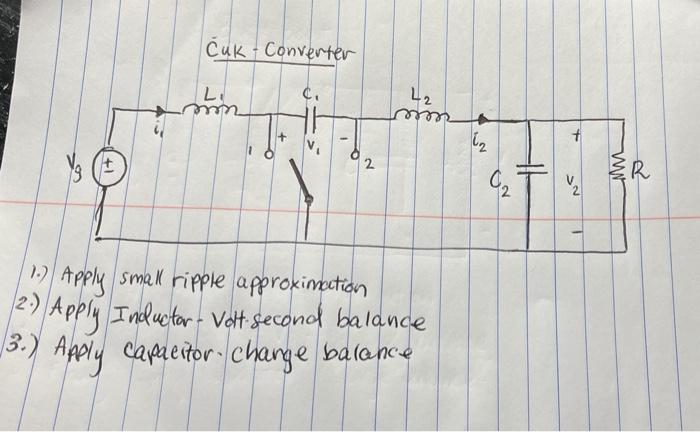 Ćuk - Converter
L1
C1
L2
i1
1
+
V1
-
2
i2
Vg
±
C2
+
V2
-
R
1.) Apply small ripple approximation
2.) Apply Inductor - Volt-second balance
3.) Apply capacitor - change balance